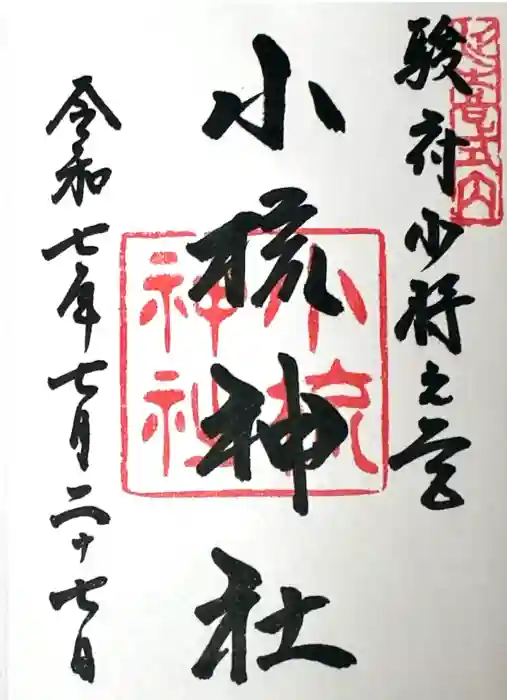 延喜式内
駿府少将之宮
小梳神社
小梳神社
令和七年七月二十七日